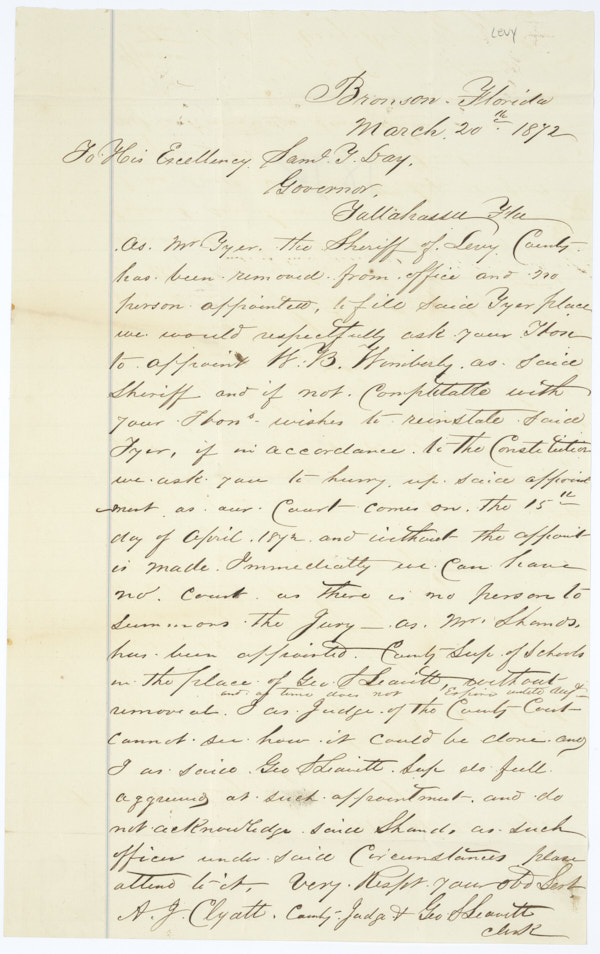 LEVY
Bronson Florida
March, 20th 1872
To His Excellency Saml. T. Day,
Governor,
Tallahassee Fla
As Mr Tyer, the Sheriff of Levy County
has been removed from office and no
person appointed, to fill said Tyer place
we would respectfully ask your Hon
to appoint W. B. Wimberly as said
Sheriff and if not Compttatle with
your Hons wishes to reinstate said
Tyer, if in accordance to the Constitution
we ask you to hurry up said appoint
ment as our Court comes on the 15th
day of April 1872 and without the appoint
is made Immediatly we can have
no Court as there is no person to
Summons the Jury — as Mr. Shands,
has been appointed County Sup of Schools
in the place of Geo S Leavitt, without
and as time does not Expire untill
removeal. I as Judge of the County Court
cannot see how it could be done and
I as said Geo S Leavitt Sup do full
aggrieved at such appointment, and do
not acknowledge said Shands as such
officer under said Circumstances please
attend to it, Very Respt your obd Sert
A. J. Clyatt. County Judge & Geo S Leavitt
Clerk